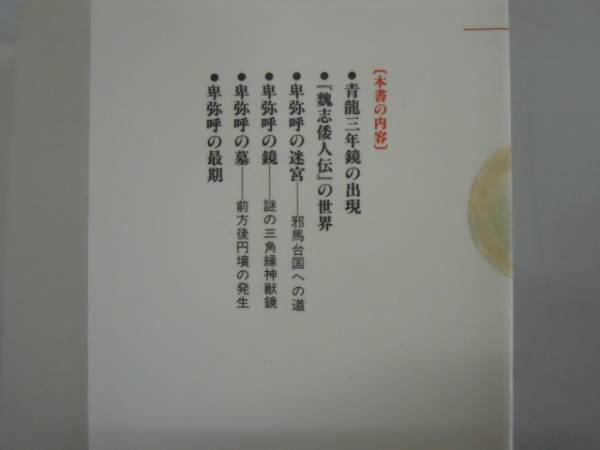 〔本書の内容〕
●青龍三年鏡の出現
●『魏志倭人伝』の世界
●卑弥呼の迷宮──邪馬台国への道
●卑弥呼の鏡──謎の三角縁神獣鏡
●卑弥呼の墓──前方後円墳の発生
●卑弥呼の最期